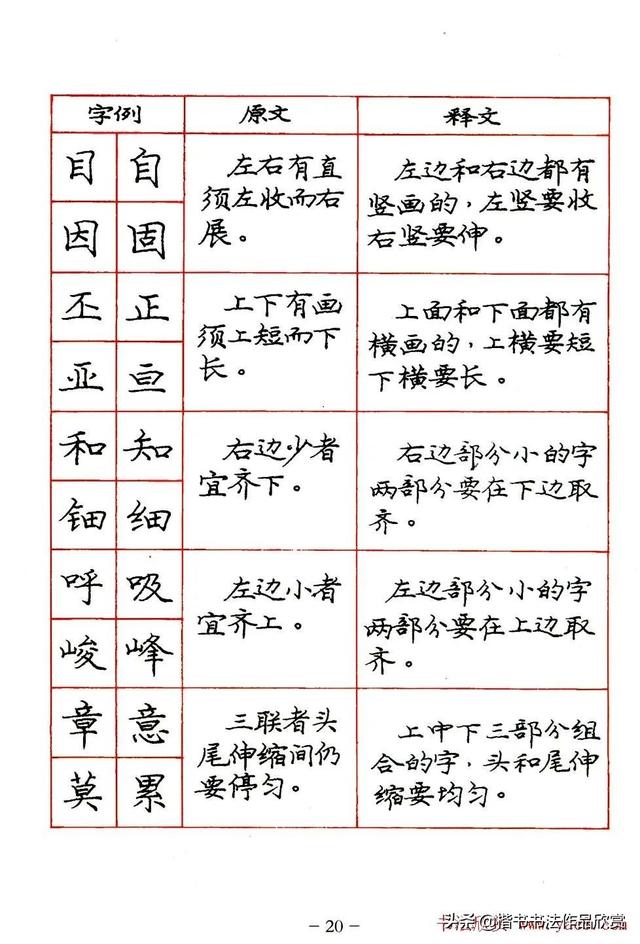 字例 原文 释文
目 自
因 固
左右有直
须左收而右
展。
左边和右边都有
竖画的，左竖要收
右竖要伸。
丕 正
亚 亘
上下有画
须上短而下
长。
上面和下面都有
横画的，上横要短
下横要长。
和 知
钿 细
右边少者
宜齐下。
右边部分小的字
两部分要在下边取
齐。
呼 吸
峻 峰
左边小者
宜齐上。
左边部分小的字
两部分要在上边取
齐。
章 意
莫 累
三联者头
尾伸缩间仍
要停匀。
上中下三部分组
合的字，头和尾伸
缩要均匀。
- 20 -
头条@楷书书法作品欣赏